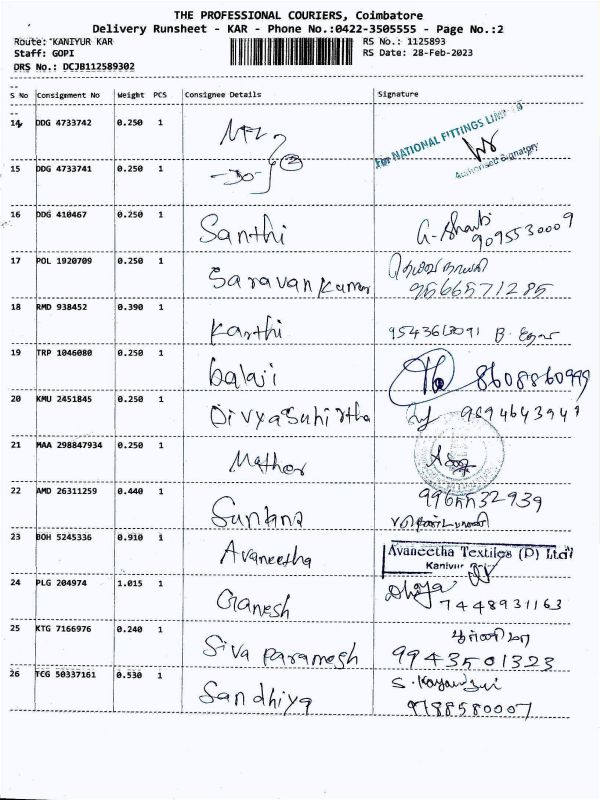 THE PROFESSIONAL COURIERS, Coimbatore
Delivery Runsheet - KAR - Phone No.:0422-3505555 - Page No.:2
Route: KANIYUR KAR
RS No.: 1125893
Staff: GOPI
RS Date: 28-Feb-2023
DRS No.: DCJB112589302
S No Consignment No Weight PCS Consignee Details Signature
14 DDG 4733742 0.250 1 NFL
For NATIONAL FITTINGS LIMITED
Authorised Signatory
15 DDG 4733741 0.250 1 -do- 2
16 DDG 410467 0.250 1 Santhi
9095530009
17 POL 1920709 0.250 1 Saravan Kumar
9566571285
18 RMD 938452 0.390 1 Karthi 9543613091
19 TRP 1046080 0.250 1 balaji 8608860999
20 KMU 2451845 0.250 1
21 MAA 298847934 0.250 1
22 AMD 26311259 0.440 1 9965532939
23 BOH 5245336 0.910 1 Avaneetha
Avaneetha Textiles (P) Ltd
Kaniyur
24 PLG 204974 1.015 1 Ganesh
7448931163
25 KTG 7166976 0.240 1 Siva paramesh
9943501323
26 TCG 50337161 0.530 1 Sandhiya
9788580007